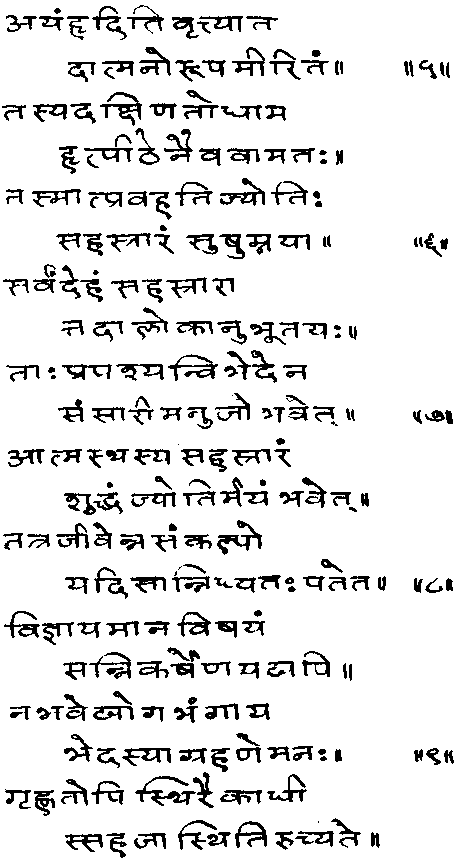 अयंहृदितिवृत्त्यात
दात्मनोरूपमीरितं॥ ॥५॥
तस्यदक्षिणतोधाम
हृत्पीठेनैववामतः॥
तस्मात्प्रवहतिज्योतिः
सहस्त्रारं सुषुम्नया॥ ॥६॥
सर्वंदेहं सहस्त्रारा
त्तदालोकानुभूतयः॥
ताःप्रपश्यन्विभेदेन
संसारीमनुजोभवेत्॥ ॥७॥
आत्मस्थस्य सहस्त्रारं
शुद्धं ज्योतिर्मयंभवेत्॥
तत्रजीवेन्नसंकल्पो
यदिसान्निध्यतःपतेत॥ ॥८॥
विज्ञायमानविषयं
सन्निकर्षेणयद्यपि॥
नभवेद्योगभंगाय
भेदस्याग्रहणेमनः॥ ॥९॥
गृह्णतोपि स्थिरैकाधी
स्सहजास्थितिरुच्यते॥